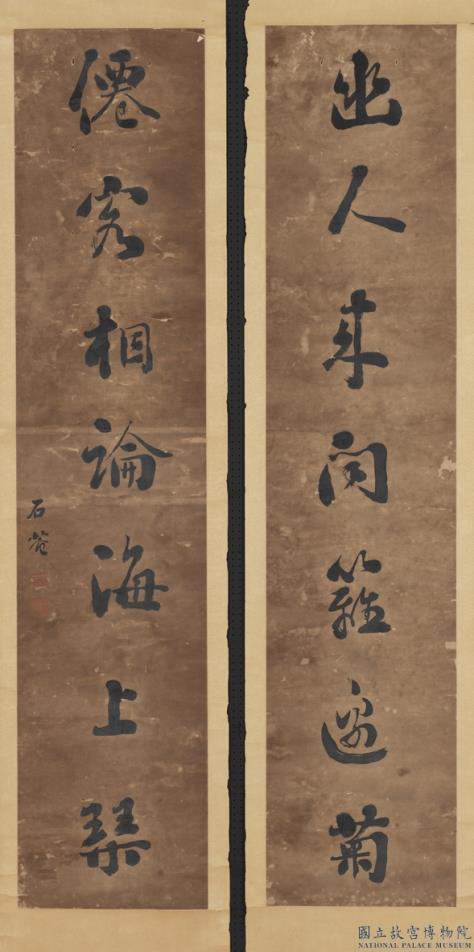 幽人來問籬邊菊
僊客相論海上琴
石菴
國立故宮博物院
NATIONAL PALACE MUSEUM